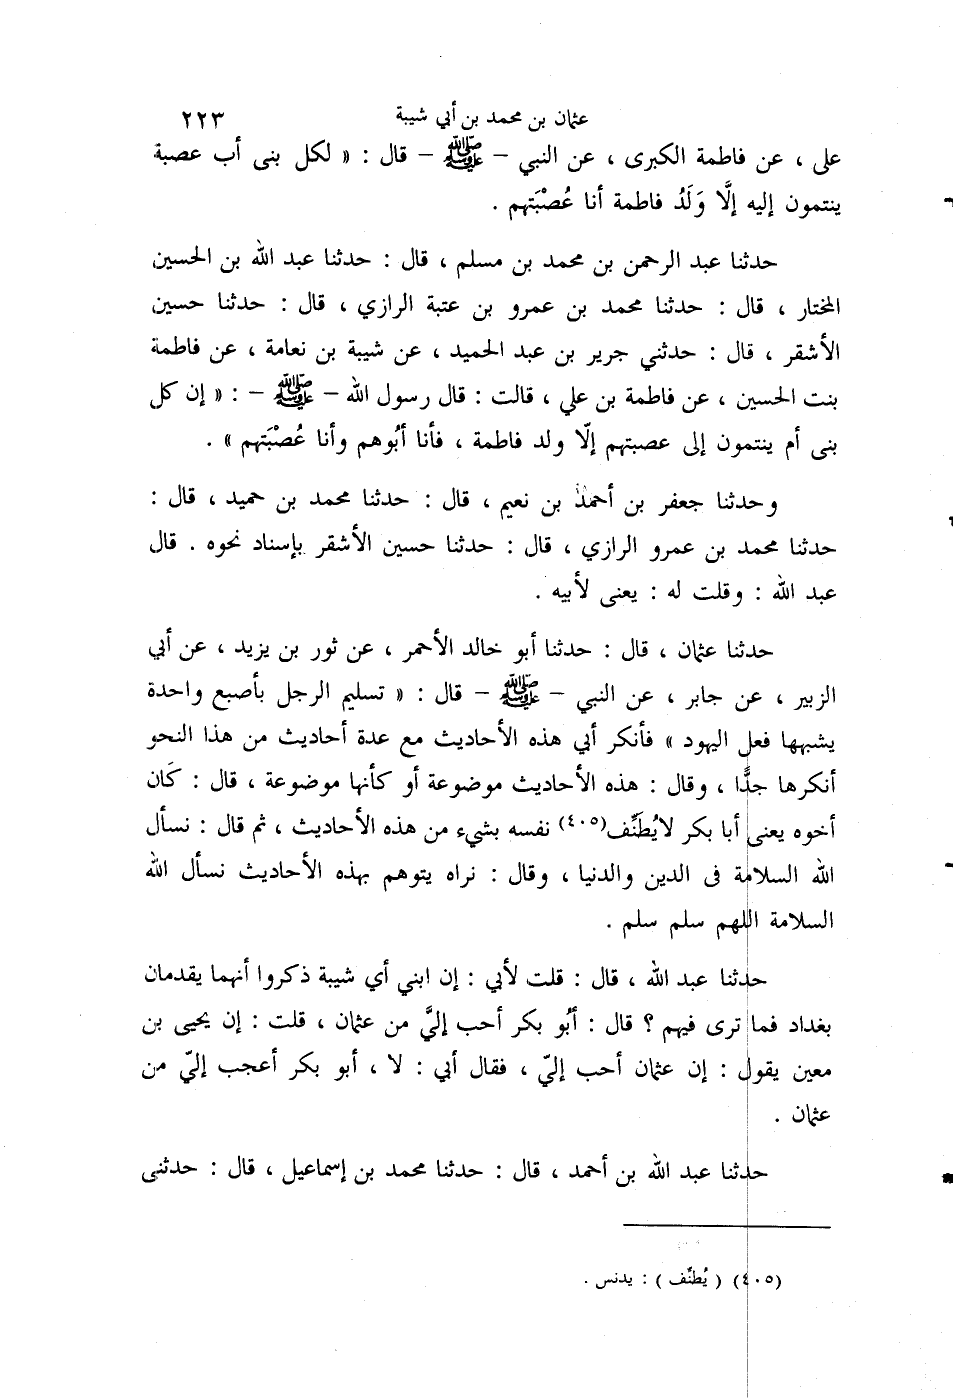 عثمان بن محمد بن أبي شيبة ٢٢٣
على ، عن فاطمة الكبرى ، عن النبي – ﷺ – قال : « لكل بنى أب عصبة
ينتمون إليه إلَّا وَلَدُ فاطمة أنا عُصْبَتهم .
حدثنا عبد الرحمن بن محمد بن مسلم ، قال : حدثنا عبد الله بن الحسين
المختار ، قال : حدثنا محمد بن عمرو بن عتبة الرازي ، قال : حدثنا حسين
الأشقر ، قال : حدثني جرير بن عبد الحميد ، عن شيبة بن نعامة ، عن فاطمة
بنت الحسين ، عن فاطمة بن علي ، قالت : قال رسول الله – ﷺ – : « إن كل
بنى أم ينتمون إلى عصبتهم إلّا ولد فاطمة ، فأنا أبُوهم وأنا عُصْبَتهم » .
وحدثنا جعفر بن أحمد بن نعيم ، قال : حدثنا محمد بن حميد ، قال :
حدثنا محمد بن عمرو الرازي ، قال : حدثنا حسين الأشقر بإسناد نحوه . قال
عبد الله : وقلت له : يعنى لأبيه .
حدثنا عثمان ، قال : حدثنا أبو خالد الأحمر ، عن ثور بن يزيد ، عن أبي
الزبير ، عن جابر ، عن النبي – ﷺ – قال : « تسليم الرجل بأصبع واحدة
يشبهها فعل اليهود » فأنكر أبي هذه الأحاديث مع عدة أحاديث من هذا النحو
أنكرها جدًّا ، وقال : هذه الأحاديث موضوعة أو كأنها موضوعة ، قال : كَان
أخوه يعنى أبا بكر لايُطَنِّف(٤٠٥) نفسه بشيء من هذه الأحاديث ، ثم قال : نسأل
الله السلامة فى الدين والدنيا ، وقال : نراه يتوهم بهذه الأحاديث نسأل الله
السلامة اللهم سلم سلم .
حدثنا عبد الله ، قال : قلت لأبي : إن ابني أي شيبة ذكروا أنهما يقدمان
بغداد فما ترى فيهم ؟ قال : أبُو بكر أحب إليَّ من عثمان ، قلت : إن يحيى بن
معين يقول : إن عثمان أحب إليّ ، فقال أبي : لا ، أبو بكر أعجب إليّ من
عثمان .
حدثنا عبد الله بن أحمد ، قال : حدثنا محمد بن إسماعيل ، قال : حدثنى
(٤٠٥) ( يُطنِّف ) : يدنس .